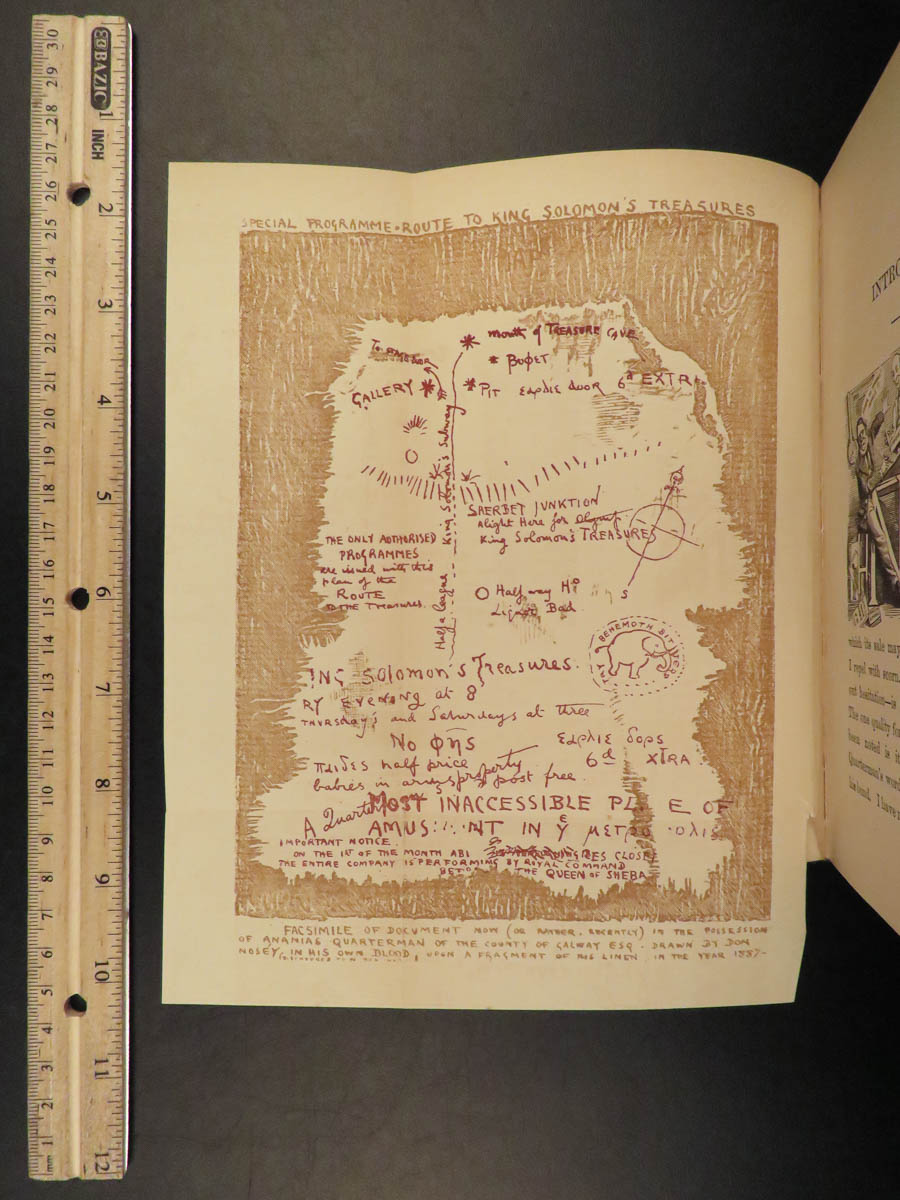 SPECIAL PROGRAMME · ROUTE TO KING SOLOMON'S TREASURES
mouth of TREASURE CAVE
ΒΟΦΕΤ
GALLERY
PIT εαρλιε door 6d EXTRA
King Solomon's Subway
SHERBET JUNKTION
Alight Here for
King Solomon's TREASURES
THE ONLY AUTHORISED
PROGRAMMES
are issued with this
plan of the
ROUTE
TO THE Treasures.
Half a league
Half way Ho
S
BEHEMOTH
ING Solomon's Treasures.
RY EVENING at 8
THURSDAY'S and Saturdays at three
No φηs
εαρλιε δορς
πιδες half price
6d XTRA
babies in arms
property
post free.
A Quarter
MOST INACCESSIBLE PL E OF
AMUS NT IN ye μετρο ολις
IMPORTANT NOTICE.
ON THE 1st OF THE MONTH
THE ENTIRE COMPANY IS PERFORMING BY ROYAL COMMAND
THE QUEEN OF SHEBA
FACSIMILE OF DOCUMENT NOW (OR RATHER, RECENTLY) IN THE POSSESSION
OF ANANIAS QUARTERMAN OF THE COUNTY OF GALWAY ESQ. DRAWN BY DON
NOSEY, IN HIS OWN BLOOD, UPON A FRAGMENT OF HIS LINEN IN THE YEAR 1887-
INTRO
which its sale may
I repel with scorn.
out hesitation—is
The one quality
been noted is it
Quarterman's word
his bond. I have
BAZIC
INCH
1
2
3
4
5
6
7
8
9
10
11
12
30
29
28
27
26
25
24
23
22
21
20
19
18
17
16
15
14
13
12
11
10
9
8
7
6
5
4
3
2
1
mm